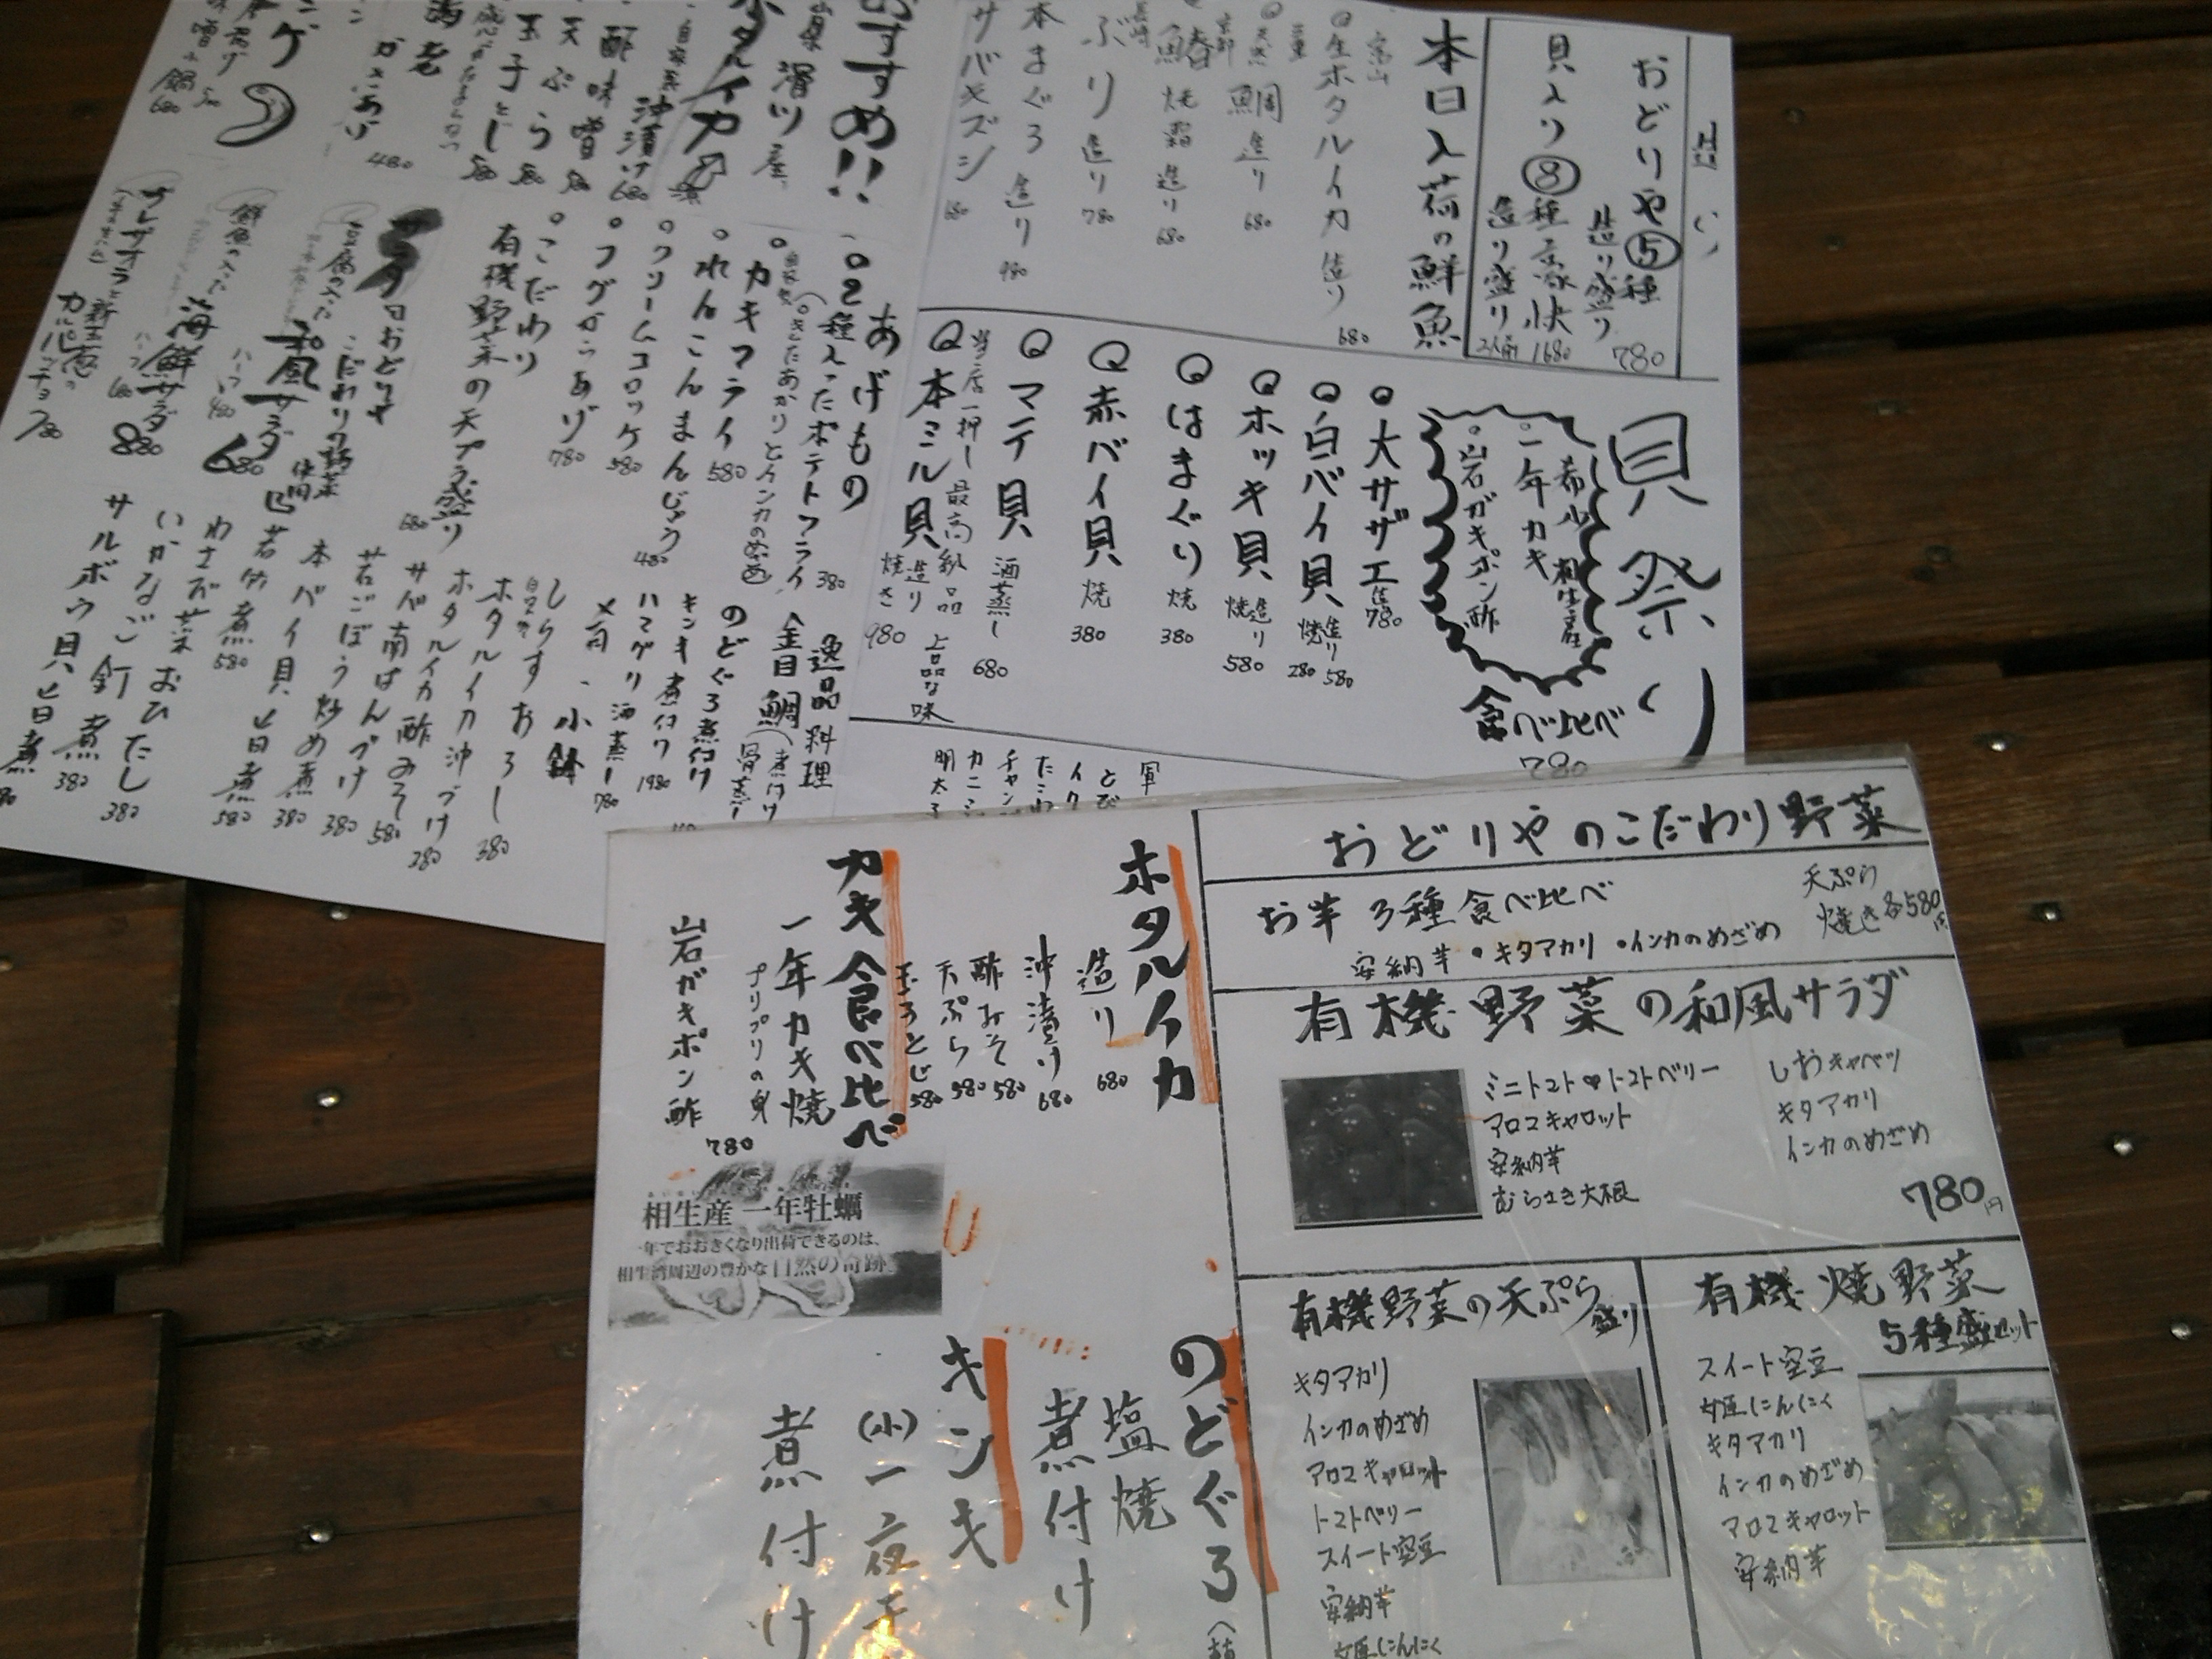 おどりや⑤種
造り盛り
780
貝入り⑧種豪快
造り盛り
1680
本日入荷の鮮魚
富山
生ホタルイカ 造り
680
天然 鯛 造り
680
鰆 焼霜造り
680
長崎
ぶり 造り
780
本まぐろ 造り
980
サバキズシ
680
貝祭り
希少 相生産
一年カキ
岩ガキポン酢
食べ比べ
780
大サザエ 造
780
白バイ貝 造り 580
焼 280
ホッキ貝 造り
焼 580
はまぐり 焼
380
赤バイ貝 焼
380
マテ貝 酒蒸し
680
当店一押し 最高級品 上品な味
本ミル貝 造り
焼き 980
おすすめ!!
滑川産
ホタルイカ
沖漬け 680
酢味噌 580
天ぷら 580
玉子とじ 580
480
あげもの
2種入ったポテトフライ 380
(きたあかりとインカのめざめ)
カキフライ 580
れんこんまんじゅう 480
クリームコロッケ 580
フグからあげ 780
こだわり
有機野菜の天プラ盛り
680
サラダ
おどりや
こだわりの野菜
使用
豆腐の入った
和風サラダ
680
ハーフ 480
鮮魚の入った
海鮮サラダ
880
ハーフ 680
新玉葱の
カルパッチョ
780
逸品料理
金目鯛(煮付け
骨蒸し
のどぐろ煮付け
キンキ煮付け 1980
ハマグリ酒蒸し 780
一、小鉢
しらすおろし 380
自家製
ホタルイカ沖づけ 280
ホタルイカ酢みそ 580
サバ南ばんづけ 380
若ごぼう炒め煮 380
本バイ貝旨煮 580
若竹煮 580
わさび菜おひたし 380
いかなご釘煮 380
サルボウ貝旨煮
軍
とび
イク
たこわ
チャン
カニミ
明太子
おどりやのこだわり野菜
お芋3種食べ比べ
天ぷら
焼き 各580円
安納芋・キタアカリ・インカのめざめ
有機野菜の和風サラダ
ミニトマト♥トマトベリー
アロマキャロット
安納芋
むらさき大根
しおキャベツ
キタアカリ
インカのめざめ
780円
有機野菜の天ぷら盛り
キタアカリ
インカのめざめ
アロマキャロット
トマトベリー
スイート空豆
安納芋
姫にんにく
有機焼野菜
5種盛セット
スイート空豆
姫にんにく
キタアカリ
インカのめざめ
アロマキャロット
安納芋
ホタルイカ
造り 680
沖漬け 680
酢みそ 580
天ぷら 580
玉子とじ 580
カキ食べ比べ
一年カキ焼
プリプリの身
岩ガキポン酢
780
相生産 一年牡蠣
一年でおおきくなり出荷できるのは、
相生湾周辺の豊かな自然の奇跡
のどぐろ
塩焼
煮付け
キンキ
(小)一夜干
煮付け